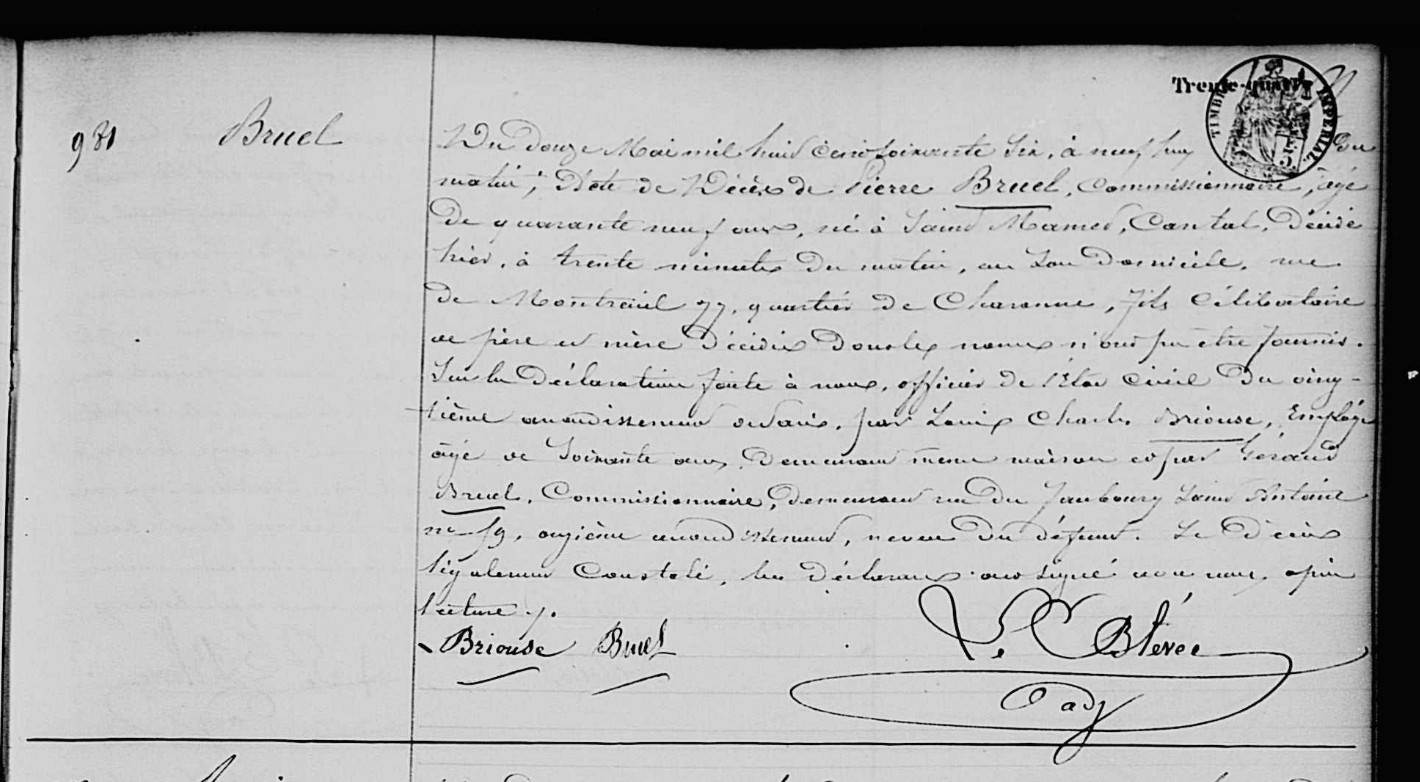 Trente-quatre
TIMBRE IMPERIAL
981 Bruel
Du douze Mai mil huit cent soixante six, à neuf heures du
matin; Acte de Décès de Pierre Bruel, Commissionnaire, âgé
de quarante neuf ans, né à Saint Mamet, Cantal, Décédé
hier, à trente minutes du matin, en son domicile, rue
de Montreuil 77, quartier de Charonne, fils célibataire
de père et mère décédés dont les noms n'ont pu être fournis.
Sur la déclaration faite à nous, officier de l'Etat civil du ving-
tième arrondissement de Paris, par Louis Charles Briouse, Employé
âgé de soixante ans, demeurant même maison et par Géraud
Bruel, Commissionnaire, demeurant rue du Faubourg Saint Antoine
n° 59, onzième arrondissement, neveu du défunt. Le Décès
légalement constaté, les déclarants ont signé avec nous, après
lecture /.
Briouse Bruel
Blevée
adj